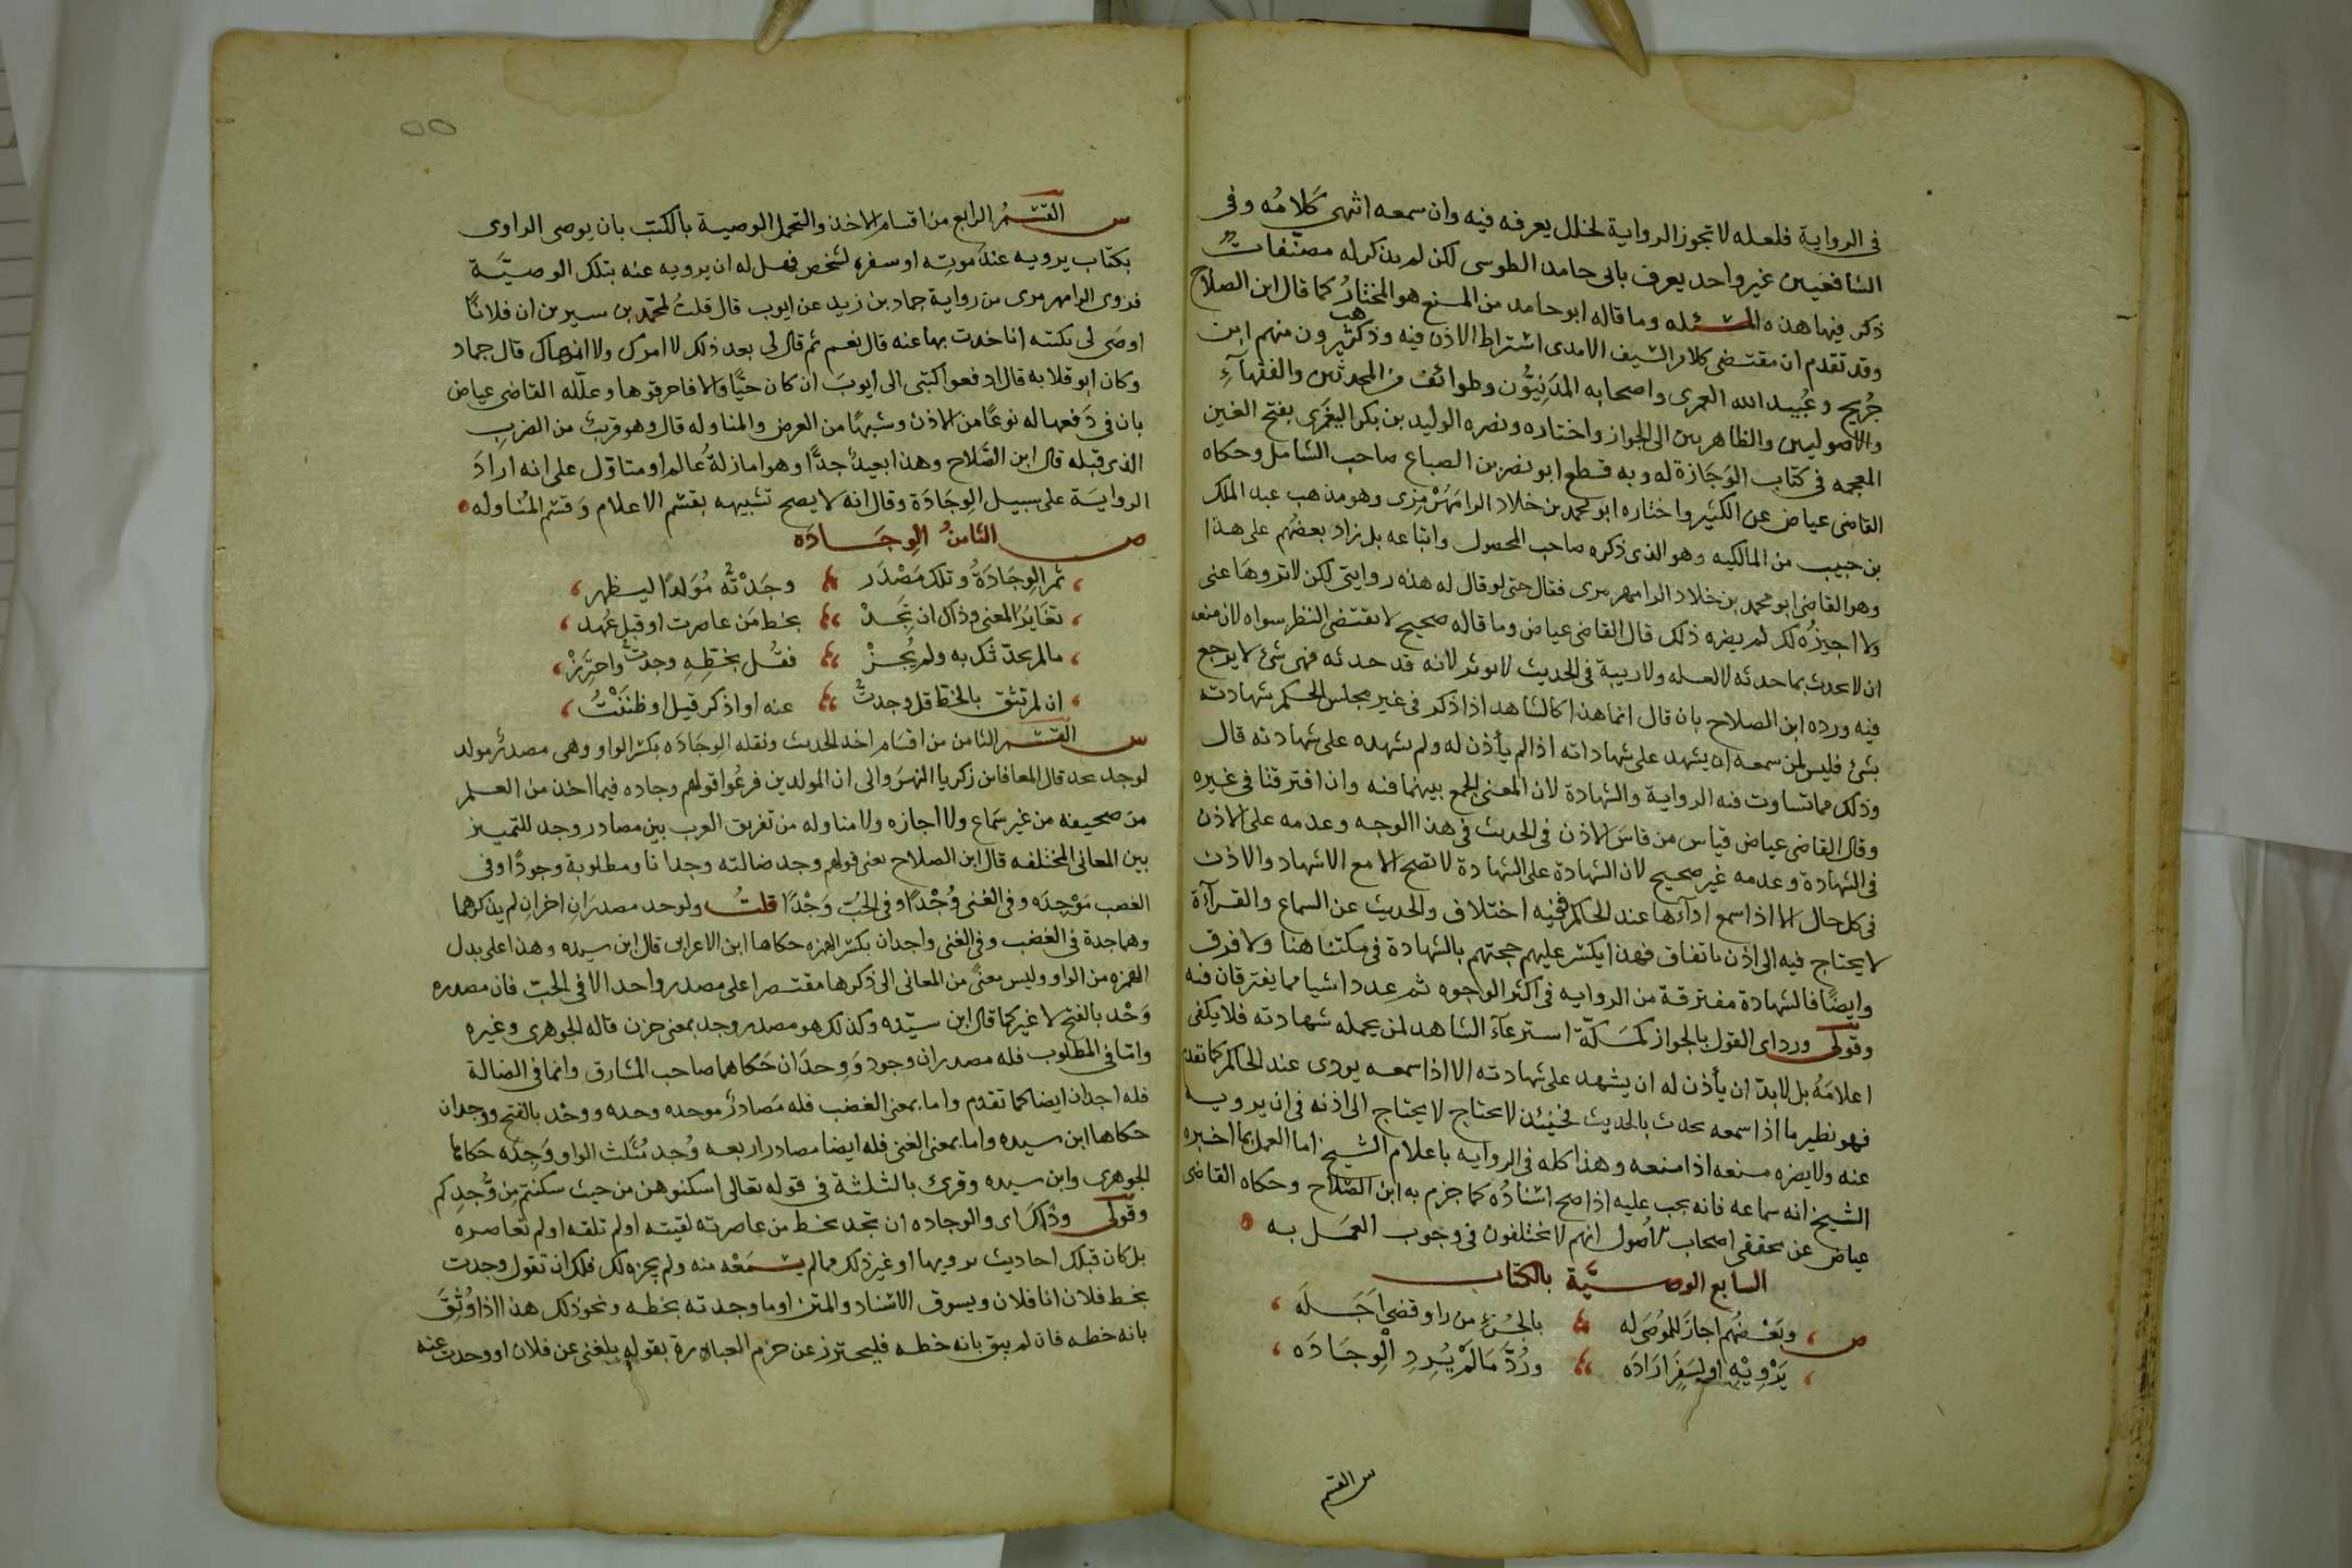 فى الرواية فلعله لا تجوز الرواية لخلل يعرفه فيه وان سمعه انتهى كَلامُه وفى
الشافعيين غير واحد يعرف بابى حامد الطوسى لكن لم يذكر له مصنّفات
ذكر فيها هذه المسئله وما قاله ابو حامد من المنع هو المختارُ كما قال ابن الصلاح
وقد تقدم ان مقتضى كلام السيف الامدى اشتراط الاذن فيه وذهب كثيرون منهم ابن
جُريج وعُبيد الله العمرى واصحابه المدَنِيّون وطوائف من المحدثين والفقهآءِ
والاصوليين والظاهريين الى الجواز واختاره ونصره الوليد بن بكر الغَمْرى بفتح الغين
المعجمه فى كتاب الوَجَازة له وبه قطع ابو نصر بن الصباغ صاحب الشامل وحكاه
القاضى عياض عن الكثير واختاره ابو محمد بن خلاد الرامَهُرْمزى وهو مذهب عبد الملك
بن حبيب من المالكيه وهو الذى ذكره صاحب المحصول واتباعه بل زاد بعضُهم على هذا
وهو القاضى ابو محمد بن خلاد الرامهرمزى فقال حتى لو قال له هذه روايتى لكن لا تروهَا عنى
ولا اجيزُه لك لم يضره ذلك قال القاضى عياض وما قاله صحيح لا يقتضى النظر سواه لان منعه
ان لا يحدث بما حدثه لا لعله ولا ريبة فى الحديث لا يوثر لانه قد حدثه فهى شئ لا يرجع
فيه ورده ابن الصلاح بان قال انما هذا كالشاهد اذا ذكر فى غير مجلس الحكم شهادته
بشئ فليس لمن سمعه ان يشهد على شهاداته اذا لم يأذن له ولم يشهده على شهادته قال
وذلك مما تساوت فيه الرواية والشهادة لان المعنى يجمع بينهما فيه وان افترقتا فى غيره
وقال القاضى عياض قياس من قاسَ الاذن فى الحديث فى هذا الوجه وعدمه على الاذن
فى الشهادة وعدمه غير صحيح لان الشهادة على الشهادة لا تصح الا مع الاشهاد والاذن
فى كل حال الا اذا سمع ادآءها عند الحاكم ففيه اختلاف والحديث عن السماع والقرآءة
لا يحتاج فيه الى اذن باتفاق فهذا يكسر عليهم حجتهم بالشهادة فى مسئلتنا هنا ولا فرق
وايضًا فالشهادة مفترقة من الروايه فى اكثر الوجوه ثم عدد اشيا مما يفترقان فيه
وقولى ورد اى القول بالجواز كمسئلة استرعآء الشاهد لمن يحمله شهادته فلا يكفى
اعلامَهُ بل لابدّ ان يأذن له ان يشهد على شهادته الا اذا سمعه يودى عند الحاكم كما تقدم
فهو نظير ما اذا سمعه يحدث بالحديث فحينئذ لا يحتاج لا يحتاج الى اذنه فى ان يرويه
عنه ولا يضره منعه اذا منعه وهذا كله فى الروايه باعلام الشيخ اما العمل بما اخبره
الشيخ انه سماعه فانه يجب عليه اذا صح اسْنادُه كما جزم به ابن الصّلاح وحكاه القاضى
عياض عن محققى اصحاب الاُصول انهم لا يختلفون فى وجوب العمَل به
السابع الوصيّة بالكتاب
ص وبَعْضُهم اجازَ للمُوصَى له بالجُزءِ من راو قضى اَجَلَه
يَرْوِيْهِ او لِسَفَرٍ ارَادَه ورُدَّ مَا لَمْ يُرِدِ الْوِجَادَه
س القسم
٥٥
س القسْمُ الرابع من اقسام الاخذ والتحمل الوصية بالكتب بان يوصى الراوى
بكتاب يرويه عند موتِه او سفره لشخص فهل له ان يرويه عنه بتلك الوصيَّة
فروى الرامهرمزى من رواية حماد بن زيد عن ايوب قال قلتُ لمحمد بن سيرين ان فلانًا
اوصَى لى بكتبه افاحدث بها عنه قال نعم ثم قال لى بعد ذلك لا امرك ولا انهاك قال حماد
وكان ابو قلابه قال ادفعوا كتبى الى ايوبَ ان كان حيًّا والا فاحرقوها وعلّله القاضى عياض
بان فى دَفعها له نوعًا من الاذن وشبهًا من العرض والمناوله قال وهو قريبٌ من الضرب
الذى قبله قال ابن الصَّلاح وهذا بعيدٌ جدًّا وهو اما زلةُ عالم او متاوّل على انه ارادَ
الروايَة على سبيل الوِجَادَة وقال انه لا يصح تشبيهه بقسْم الاعلام وَقسْم المُناوله
ص الثامنُ الوِجَادَه
ثم الوِجَادَةُ وتلك مَصْدَر وجَدْتُه مُوَلدًا ليظهر
تغَايُرُ المعنى وذاك ان تَجِدْ بخط مَن عاصرت او قبل عُهد
ما لم يحدّثك به ولم يُجِزْ فقُل بخطِّهِ وجدتُ واحتَرِزْ
ان لم تثق بالخط قل وجدتُّ عنه او اذكر قيل او ظنَنْتُ
س القسْم الثامن من اقسَام اخذ الحديث ونقله الوِجَادَه بكسْر الواو وهى مصدرٌ مولد
لوجد يجد قال المعافا بن زكريا النهرَوانى ان المولدين فرعُوا قولهم وجاده فيما اخذ من العلم
من صحيفه من غير سَماع ولا اجازه ولا مناوله من تفريق العرب بين مصادر وجد للتمييز
بين المعانى المختلفه قال ابن الصلاح يعنى قولهم وجد ضالته وجدانا ومطلوبة وجودًا وفى
الغضب مَوْجِدَه وفى الغنى وُجْدًا وفى الحُبّ وَجْدًا قلتُ ولوجد مصدرَان اخران لم يذكرهما
وهما جدة فى الغضب وفى الغنى واجدان بكسْر الهمزه حكاها ابن الاعرابى قال ابن سيده وهذا على بدل
الهمزه من الواو وليس معنًى من المعانى التى ذكرها مقتصرا على مصدر واحد الا فى الحبّ فان مصدره
وَجْد بالفتح لا غير كما قال ابن سيّده وكذلك هو مصدر وجد بمعنى حزن قاله الجوهرى وغيره
وامّا فى المطلوب فله مصدران وجود وَوِجدَان حَكاهما صاحب المشارق وانما فى الضالة
فله اجدان ايضا كما تقدم واما بمعنى الغضب فله مَصادرُ موجده وجده ووجْد بالفتح ووجدان
حكاها ابن سيده واما بمعنى الغنى فله ايضا مصادر اربعه وُجد مُثَلث الواو وَجِدَه حكاها
الجوهرى وابن سيده وقرئ بالثلثة فى قوله تعالى اسكنوهن من حيث سكنتم مِن وُجدِكم
وقولى وذاكَ اى والوجاده ان تجد بخط من عاصرته لقيته او لم تلقه او لم تعاصره
بل كان قبلك احاديث يرويها او غير ذلك مما لم يسْمَعْه منه ولم يجزه لك فلك ان تقول وجدت
بخط فلان انا فلان ويسوق الاسْناد والمتن او ما وجدته بخطه ونحو ذلك هذا اذا وُثِقَ
بانه خطه فان لم يثق بانه خطه فليحترز عن جزم العبارة بقوله بلغنى عن فلان او وجدت عنه